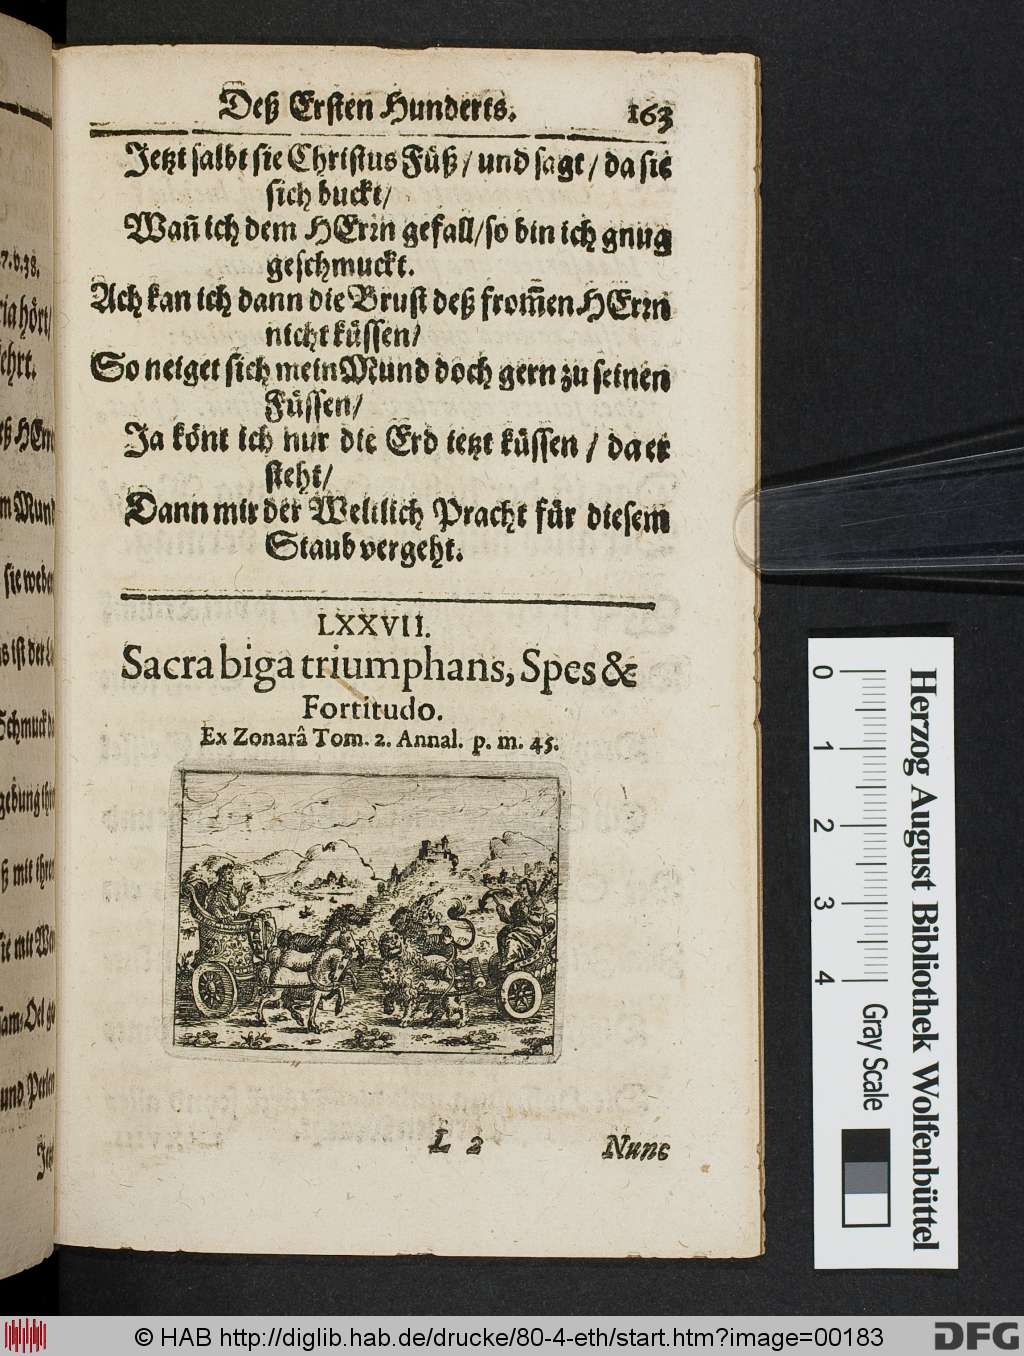 Deß Ersten Hunderts. 163
Jetzt salbt sie Christus Füß / und sagt / da sie
sich buckt /
Wañ ich dem HErrn gefall / so bin ich gnug
geschmuckt.
Ach kan ich dann die Brust deß from̃en HErrn
nicht küssen /
So neiget sich mein Mund doch gern zu seinen
Füssen /
Ja könt ich nur die Erd ietzt küssen / da er
steht /
Dann mir der Weltlich Pracht für diesem
Staub vergeht.
LXXVII.
Sacra biga triumphans, Spes &
Fortitudo.
Ex Zonarâ Tom. 2. Annal. p. m. 45.
L 2 Nunc
7. v. 38.
ria hört /
ehrt.
ß HErrn
m Mund
sie weder
s ist der
Schmuck
gebung ihr
ß mit ihren
sie mit
sam-Oel
und Perlen
Jetzt
0 1 2 3 4
Gray Scale
Herzog August Bibliothek Wolfenbüttel
© HAB http://diglib.hab.de/drucke/80-4-eth/start.htm?image=00183
DFG